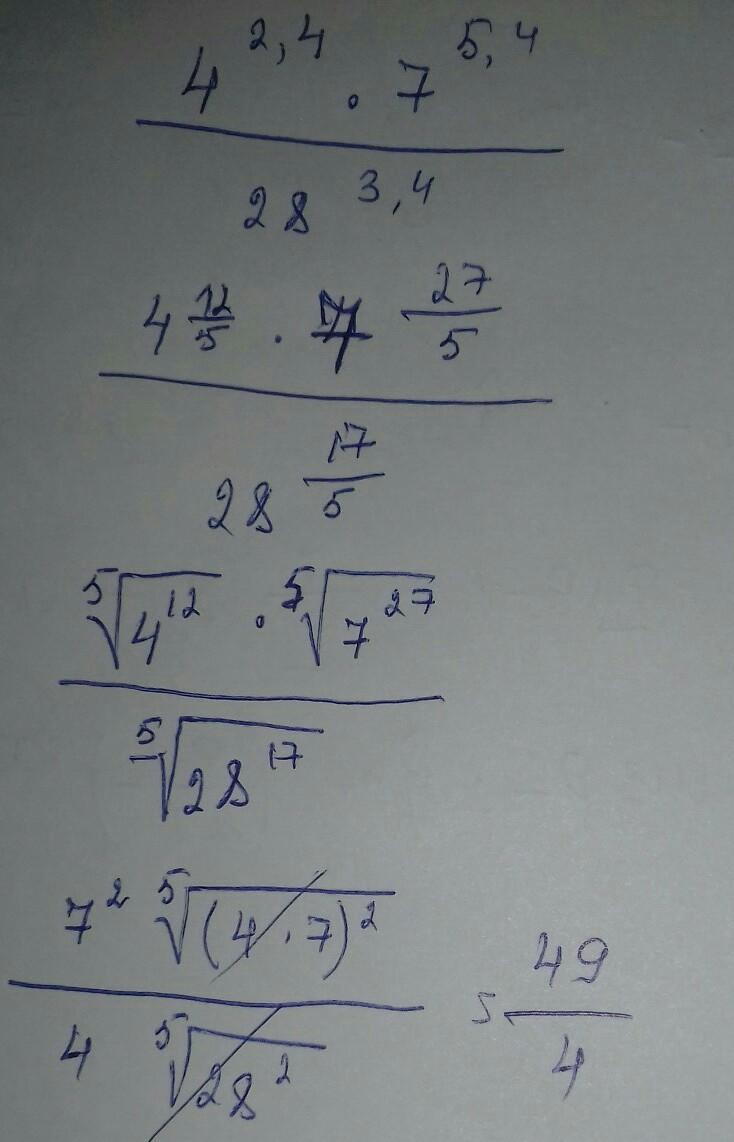 4^2,4 · 7^5,4
28^3,4
4^12/5 · 7^27/5
28^17/5
⁵√4^12 · ⁵√7^27
⁵√28^17
7^2 ⁵√(4·7)^2
4 ⁵√28^2
= 49/4